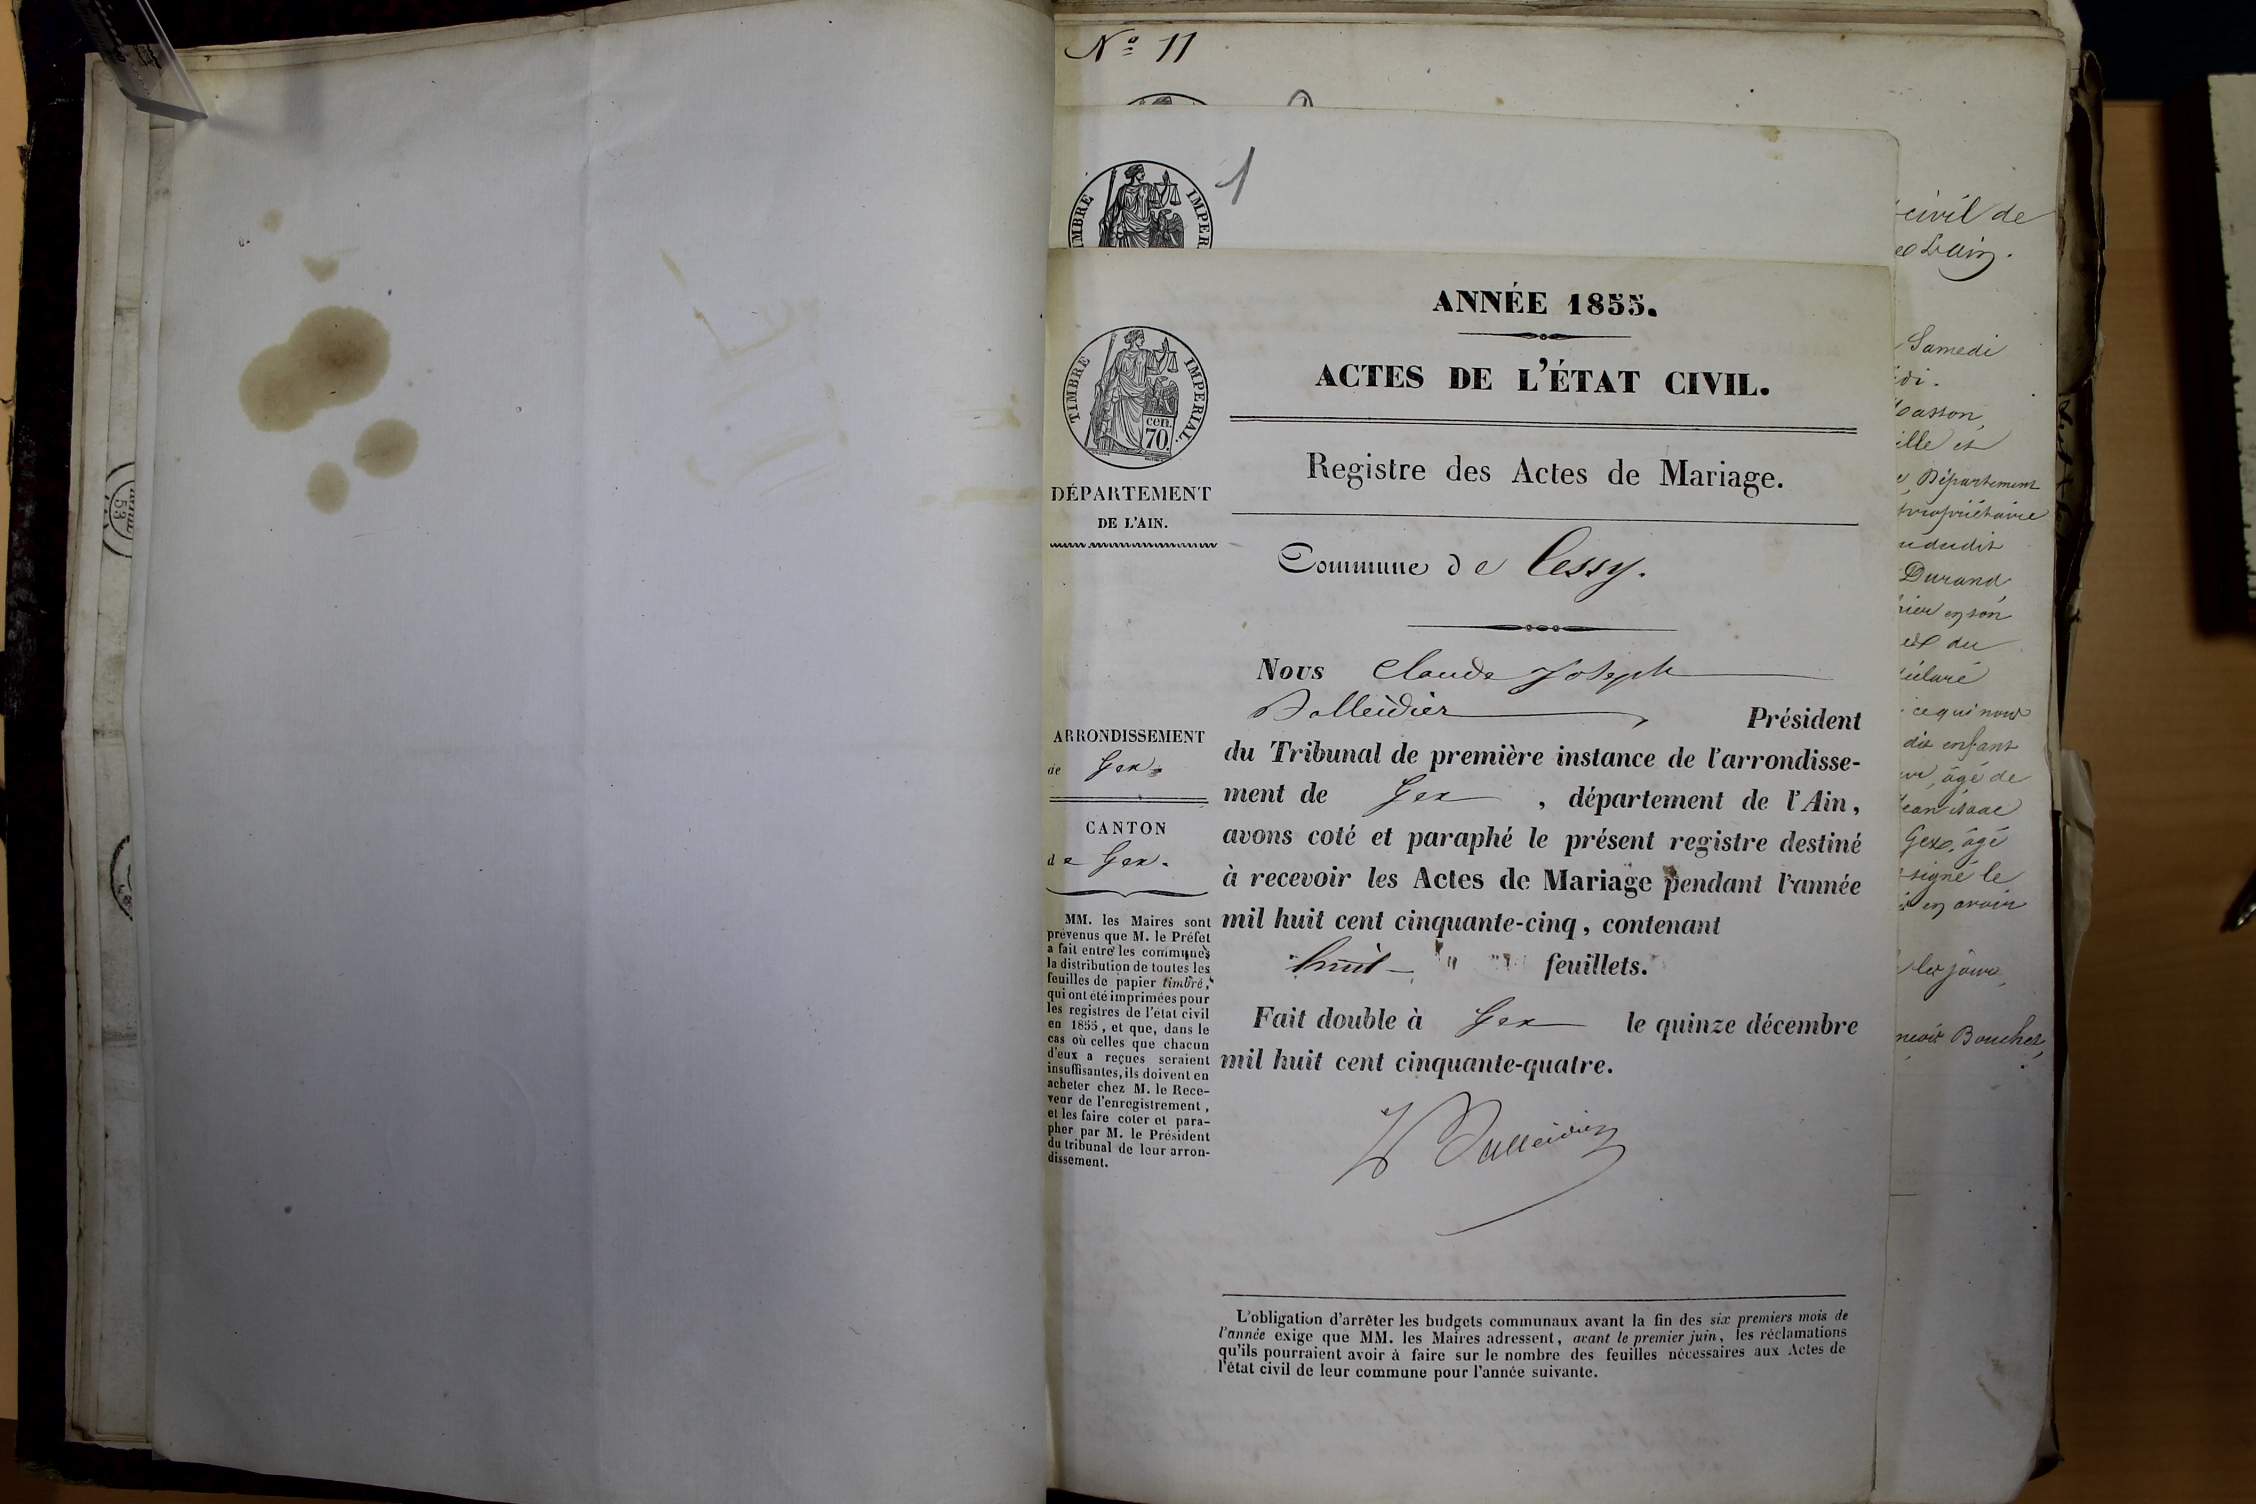 Nº 11
1
TIMBRE IMPER
ANNÉE 1855.
ACTES DE L'ÉTAT CIVIL.
TIMBRE IMPERIAL.
cen.
70.
Registre des Actes de Mariage.
DÉPARTEMENT
DE L'AIN.
Commune de Cessy.
Nous Claude Joseph
Balleidier, Président
du Tribunal de première instance de l'arrondisse-
ment de Gex, département de l'Ain,
avons coté et paraphé le présent registre destiné
à recevoir les Actes de Mariage pendant l'année
mil huit cent cinquante-cinq, contenant
huit " " feuillets.
Fait double à Gex le quinze décembre
mil huit cent cinquante-quatre.
Balleidier
ARRONDISSEMENT
de Gex.
CANTON
de Gex.
MM. les Maires sont
prévenus que M. le Préfet
a fait entre les communes
la distribution de toutes les
feuilles de papier timbré,
qui ont été imprimées pour
les registres de l'état civil
en 1855, et que, dans le
cas où celles que chacun
d'eux a reçues seraient
insuffisantes, ils doivent en
acheter chez M. le Rece-
veur de l'enregistrement,
et les faire coter et para-
pher par M. le Président
du tribunal de leur arron-
dissement.
L'obligation d'arrêter les budgets communaux avant la fin des six premiers mois de
l'année exige que MM. les Maires adressent, avant le premier juin, les réclamations
qu'ils pourraient avoir à faire sur le nombre des feuilles nécessaires aux Actes de
l'état civil de leur commune pour l'année suivante.
civil de
Samedi
Département
propriétaire
Durand
du
ce qui nous
dit enfant
âgé de
isaac
Gex, âgé
signé le
en avoir
Bouchet,